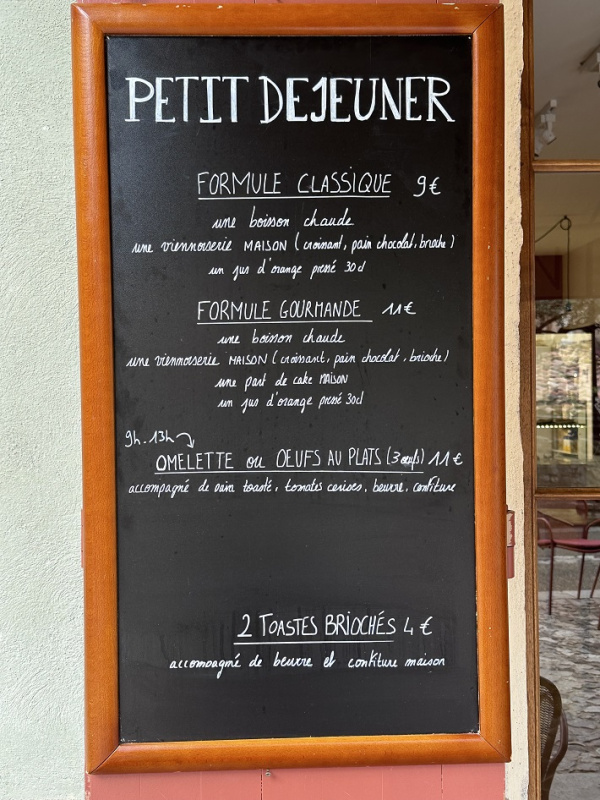 PETIT DEJEUNER
FORMULE CLASSIQUE 9€
une boisson chaude
une viennoiserie MAISON (croissant, pain chocolat, brioche)
un jus d'orange pressé 30cl
FORMULE GOURMANDE 11€
une boisson chaude
une viennoiserie MAISON (croissant, pain chocolat, brioche)
une part de cake MAISON
un jus d'orange pressé 30cl
9h.13h
OMELETTE ou OEUFS AU PLATS (3 œufs) 11€
accompagné de pain toasté, tomates cerises, beurre, confiture
2 TOASTES BRIOCHÉS 4€
accompagné de beurre et confiture maison